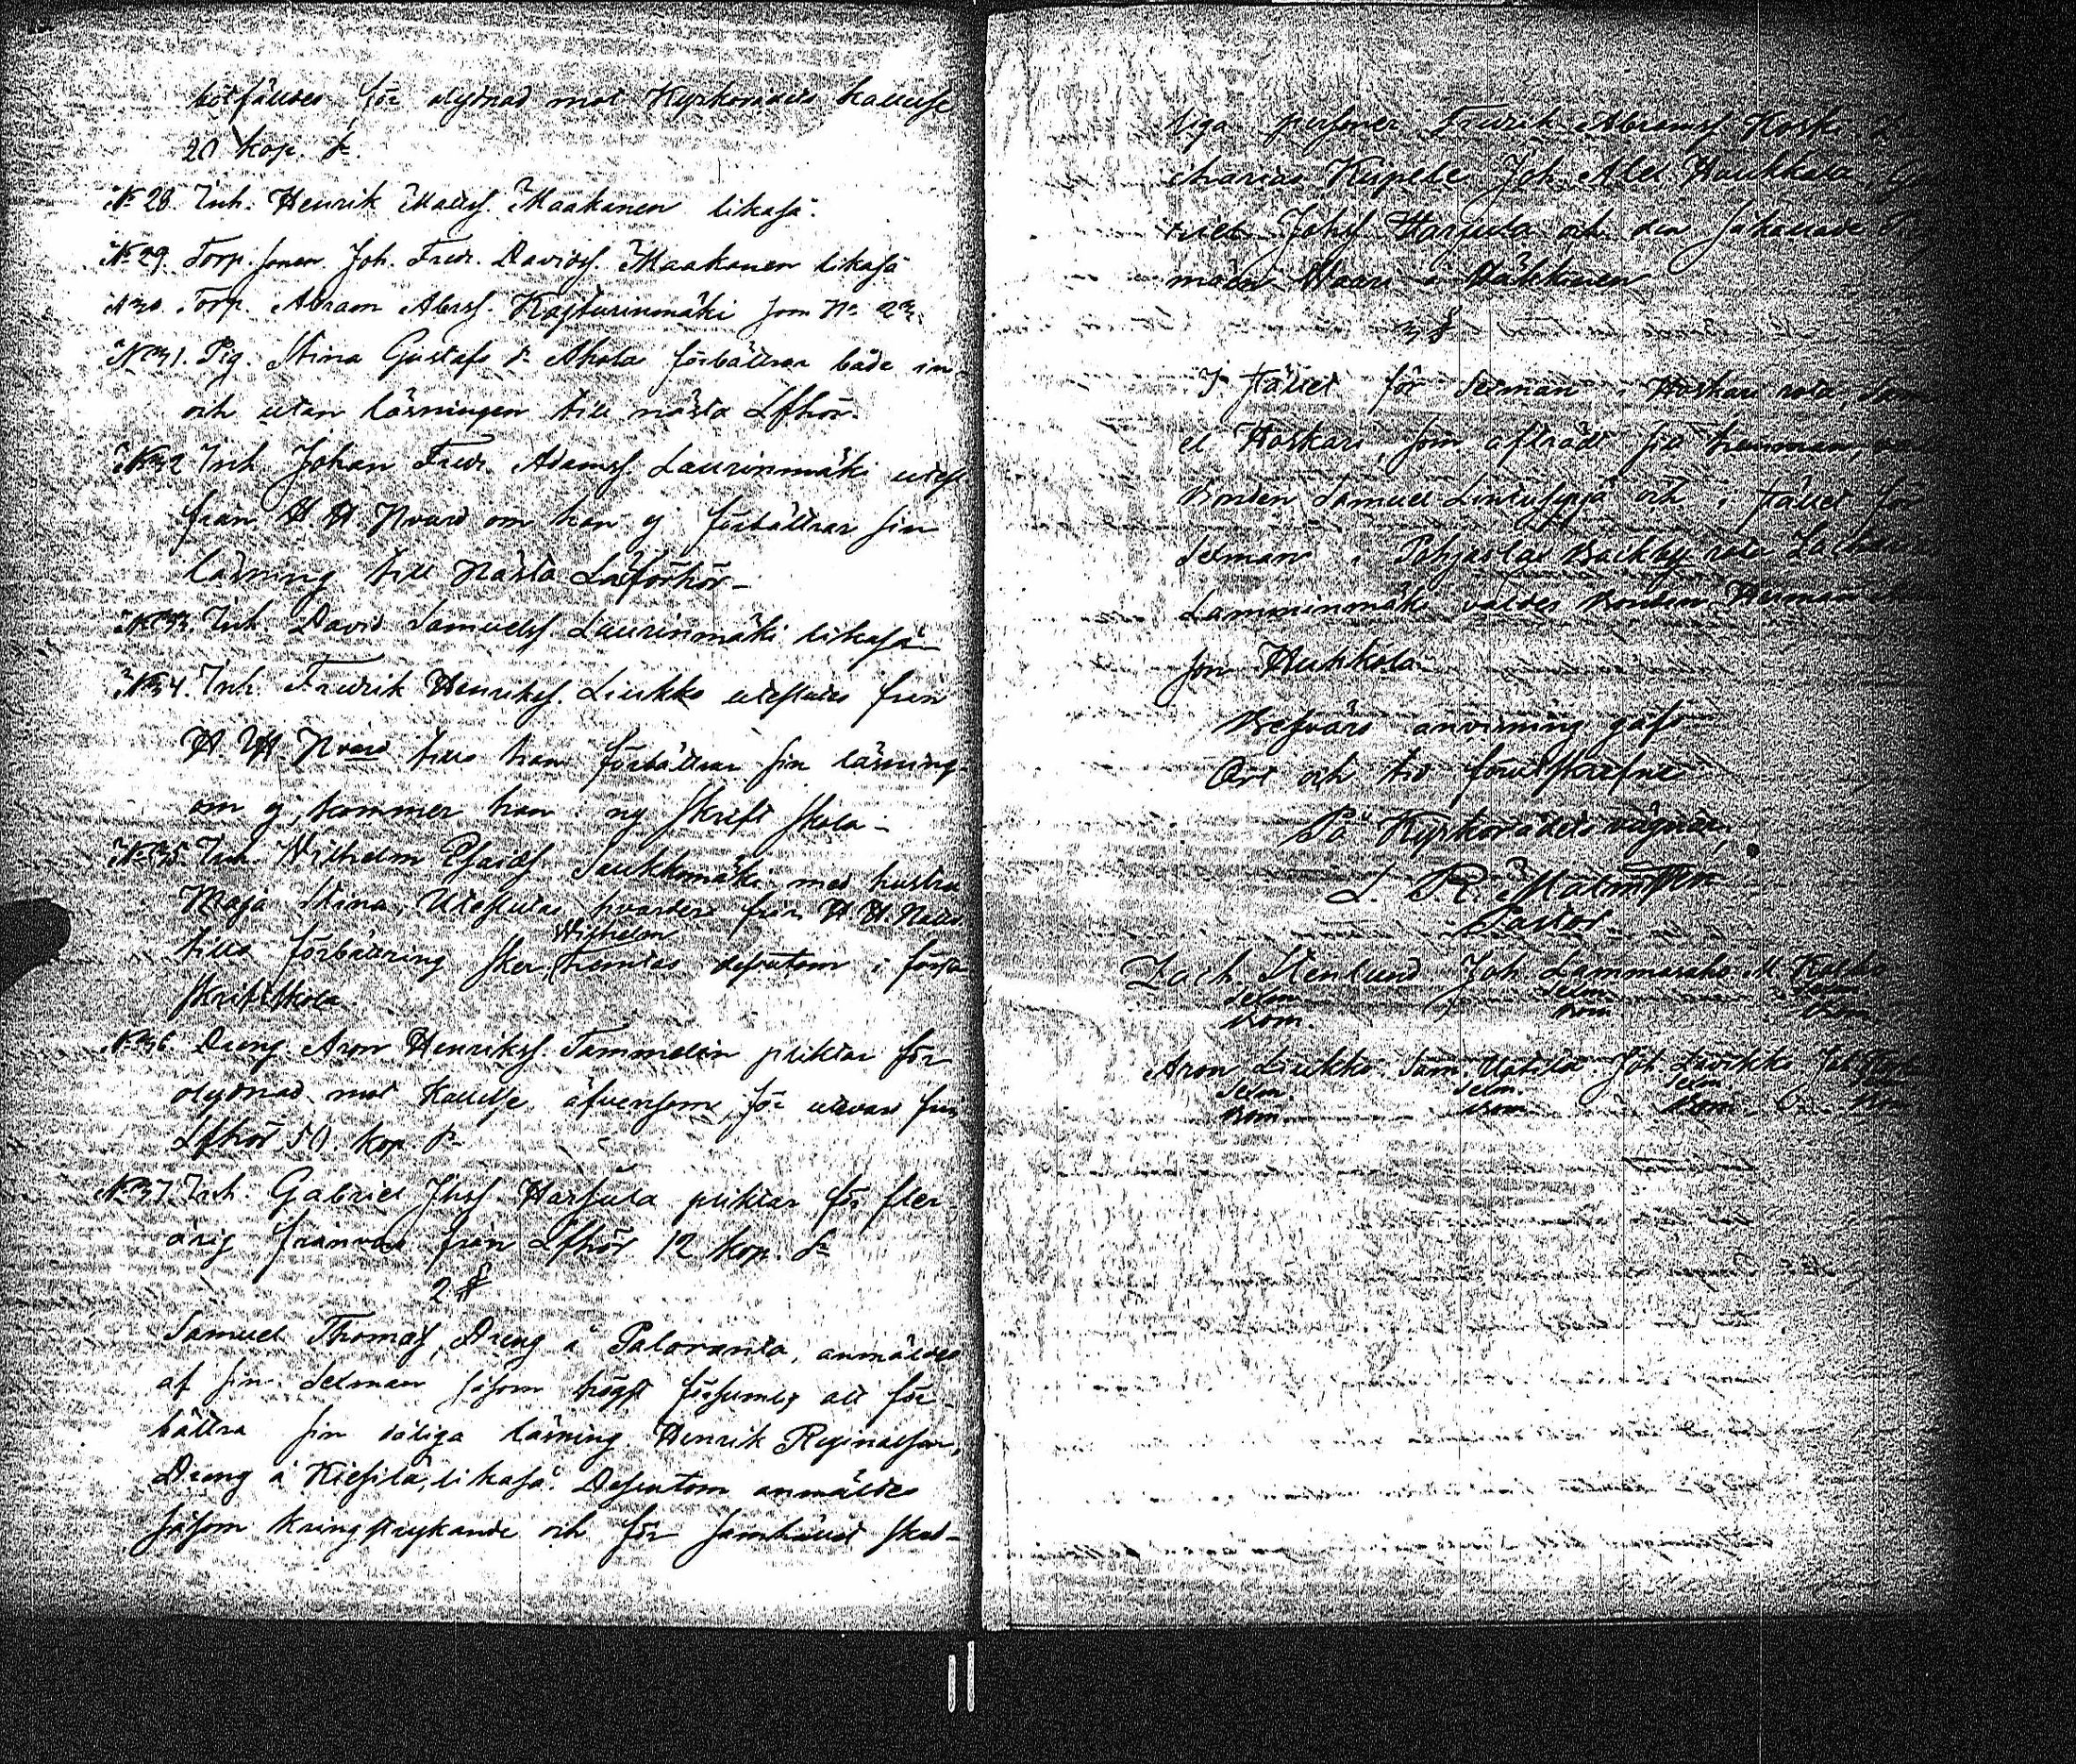 botfälldes för olydnad mot Kyrkorådets kallelse
20 kop. Sr.
No 28. Inh. Henrik Mattsf. Maakanen likaså.
No 29. Torp. sonen Joh. Fredr. Davidsf. Maakanen likaså
No 30. Torp. Abram Abrsf. Kasturinmäki som No 23.
No 31. Pig. Stina Gustafs dr Ahola förbättrar både in
och utan läsningen till nästa Lfhör.
No 32 Inh Johan Fredr. Adamsf. Laurinmäki utesl
från H. H. Nvard om han ej förbättrar sin
läsning till Nästa Läsförhör -
No 33. Inh David Samuelsf. Laurinmäki likaså
No 34. Inh. Fredrik Henriksf. Liukko uteslutes från
H. H Nvard tills han förbättrar sin läsning
om ej, kommer han i ny skrift skola -
No 35. Inh. Wilhelm Esaiæsf. Saukkomäki med hustru
Maja Stina, Uteslutas hvardera från H. H. Nattv.
tills förbättring sker, Wilhelm hemtas dessutom i första
skriftskola
No 36. Dreng. Aron Henriksf. Tammelin pliktar för
olydnad mot Kallelse äfvensom för utevaro från
Lfhör 50 kop. Sr
No 37. Inh. Gabriel Jhsf. Harjula pliktar för fler
årig frånvaro från Lfhör 12 kop. Sr
2 §
Samuel Thomasf, Dreng å Paloranta, anmäldes
af sin Sexman såsom högst försumlig att för
bättra sin dåliga läsning. Henrik Reginalsson,
Dreng å Kiesilä, likaså. Dessutom anmäldes
såsom kringstrykande och för samhället skad-
liga personer Fredrik Abramsf Koski Z
charias Joh. Alex Haukkala, G
riel Johsf Harjula och den så kallade
målar Haari i
3 §
I stället för Sexman i Koskari rote, Sam
el Koskari, som afträdt sin tjenst,
Bonden Samuel och i stället för
Sexman i Pohjaslax Backby rote Zacharias
Lamminmäki valdes Bonden Herman
son Huhkola
Besvärs anvisning gafs
Ort och tid förutskrefne
På Kyrkorådets vägnar,
L. R. Malmsten
Pastor
Zach. Stenlund Joh. Lammasaho M
Sexm. Sexm. Sexm
Bom. Bom Bom
Aron Liukko. Sam. Uotila. Joh. Joh
Sexm. Sexm. Sexm
Bom. Bom Bom Bom